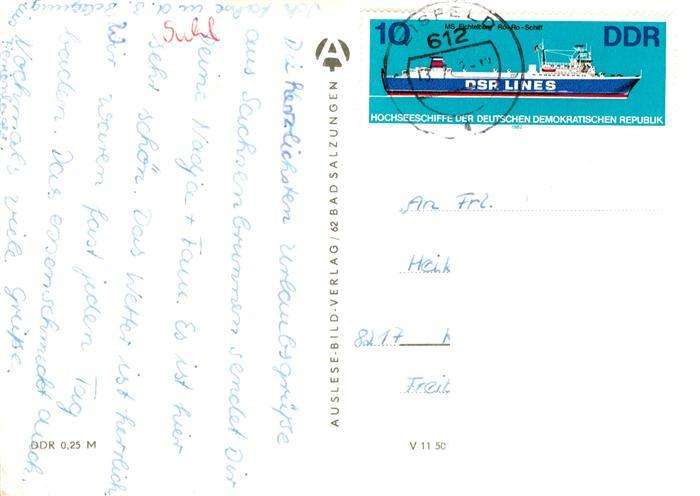 Die herzlichsten Urlaubsgrüße
aus Sachsenbrunn sendet Dir
Deine Nadja + Fam. Es ist hier
sehr schön. Das Wetter ist herrlich.
Wir waren fast jeden Tag
baden. Das Essen schmeckt auch.
Nochmals viele Grüße.
Suhl
AUSLESE-BILD-VERLAG / 62 BAD SALZUNGEN
DDR 0,25 M
V 11 50
10
MS Fichtelberg Ro-Ro-Schiff
DDR
DSR LINES
HOCHSEESCHIFFE DER DEUTSCHEN DEMOKRATISCHEN REPUBLIK
1982
ISFELD
612
An Frl.
Heik
8217
Freit